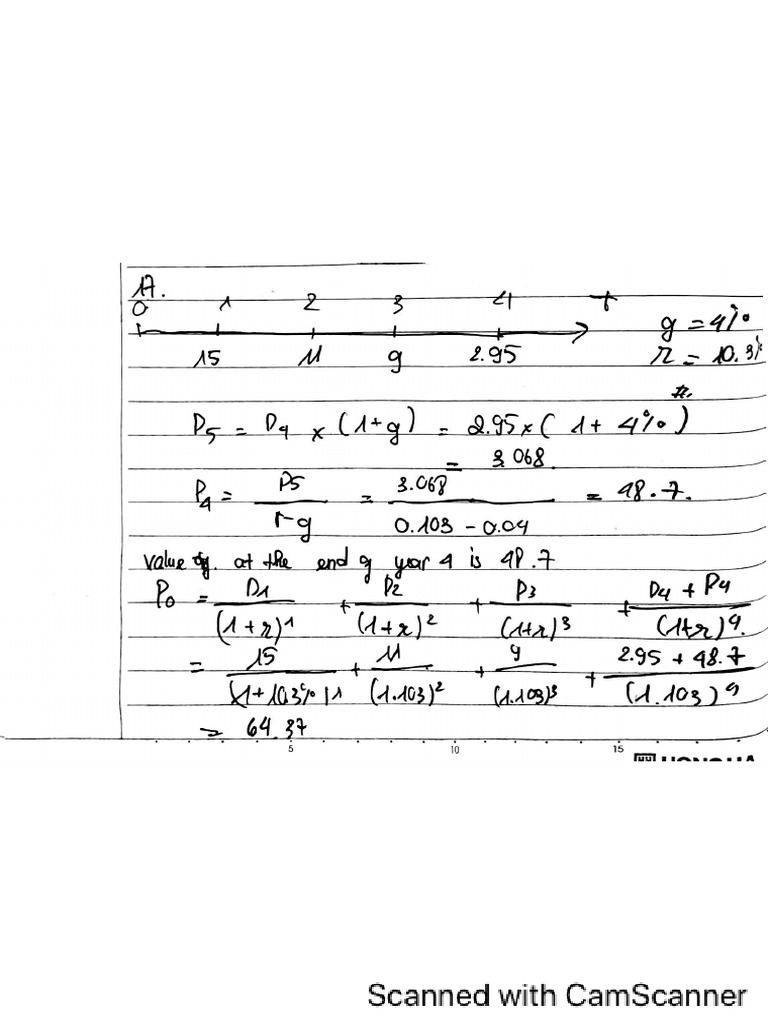 17.
0 1 2 3 4 t
15 11 9 2.95
g = 4%
r = 10.3%
D5 = D4 x (1+g) = 2.95x( 1 + 4%)
= 3.068.
P4 = D5 / r-g = 3.068 / 0.103 - 0.04 = 48.7.
value at the end of year 4 is 48.7
P0 = D1 / (1+r)^1 + D2 / (1+r)^2 + D3 / (1+r)^3 + D4 + P4 / (1+r)^4.
= 15 / (1+10.3%)^1 + 11 / (1.103)^2 + 9 / (1.103)^3 + 2.95 + 48.7 / (1.103)^4
= 64.37
5 10 15
Scanned with CamScanner